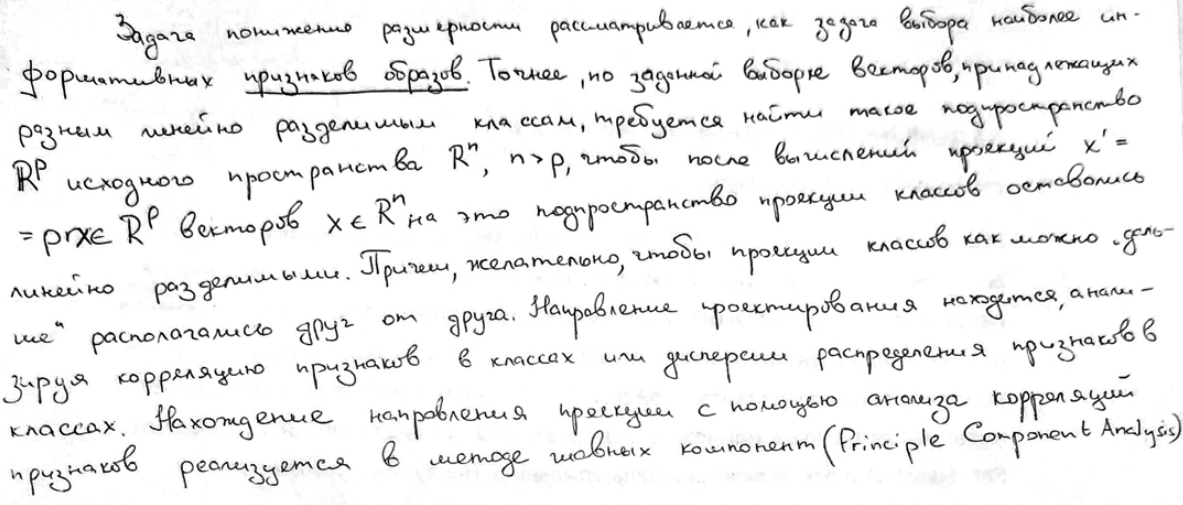 Задача понижения размерности рассматривается, как задача выбора наиболее ин-
формативных признаков образов. Точнее, по заданной выборке векторов, принадлежащих
разным линейно разделимым классам, требуется найти такое подпространство
R^p исходного пространства R^n, n>p, чтобы после вычислений проекций x' =
= prx∈ R^p векторов x ∈ R^n на это подпространство проекции классов оставались
линейно разделимыми. Причем, желательно, чтобы проекции классов как можно „даль-
ше“ располагались друг от друга. Направление проектирования находится, анали-
зируя корреляцию признаков в классах или дисперсии распределения признаков в
классах. Нахождение направления проекции с помощью анализа корреляций
признаков реализуется в методе главных компонент (Principle Component Analysis)